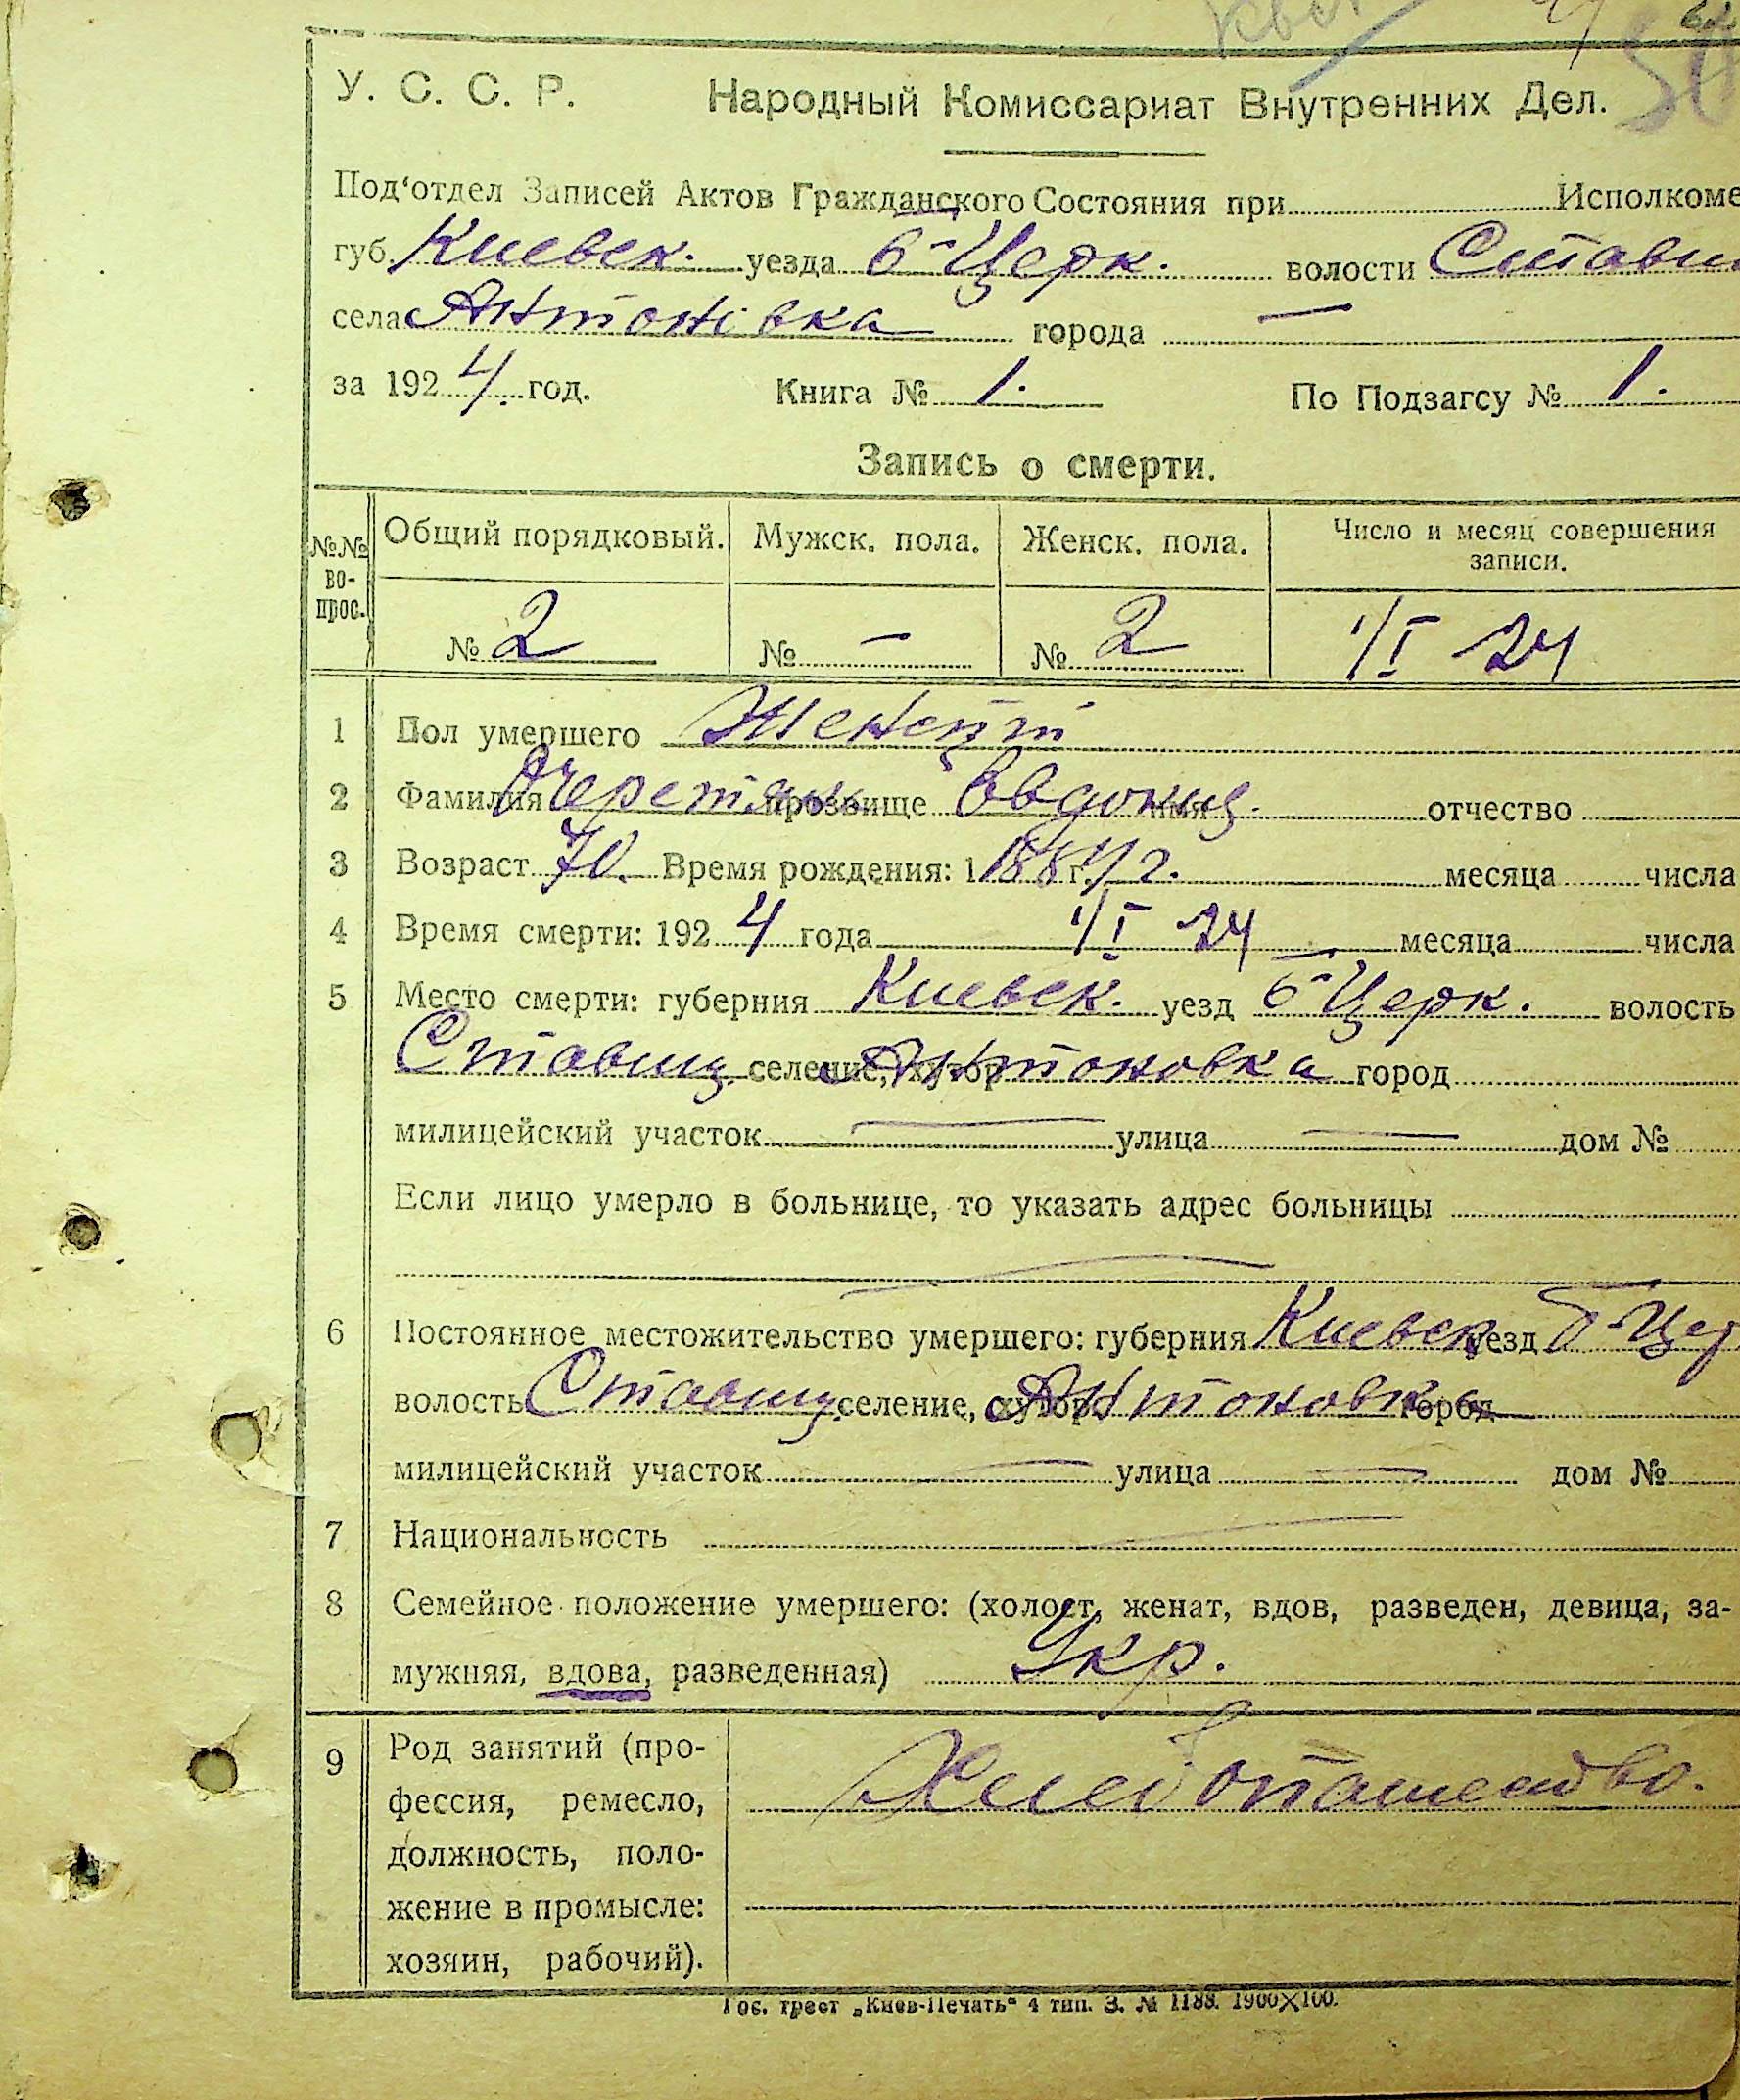 62
У. С. С. Р. Народный Комиссариат Внутренних Дел.
Под‘отдел Записей Актов Гражданского Состояния при Исполкоме
губ. Киевск. уезда б-Церк. волости Ставищ
села Антонівка города —
за 1924 год. Книга № 1. По Подзагсу № 1.
Запись о смерти.
№№ во-прос. Общий порядковый. Мужск. пола. Женск. пола. Число и месяц совершения записи.
№ 2 № — № 2 1/I 24
1 Пол умершего
2 Фамилия Очеретяна прозвище Евдокия имя отчество
3 Возраст 70. Время рождения: 1 г. месяца числа
4 Время смерти: 1924 года 1/I 24 месяца числа
5 Место смерти: губерния Киевск. уезд б-Церк. волость
Ставищ. селение, хутор Антоновка город
милицейский участок — улица — дом №
Если лицо умерло в больнице, то указать адрес больницы
—
6 Постоянное местожительство умершего: губерния Киевск уезд б-Цер
волость Ставищ. селение, хутор Антоновка город
милицейский участок — улица — дом №
7 Национальность —
8 Семейное положение умершего: (холост, женат, вдов, разведен, девица, за-
мужняя, вдова, разведенная) Укр.
9 Род занятий (про-
фессия, ремесло, Хлебопашество.
должность, поло-
жение в промысле:
хозяин, рабочий).
Гос. трест „Киев-Печать“ 4 тип. З. № 1188. 1900×100.